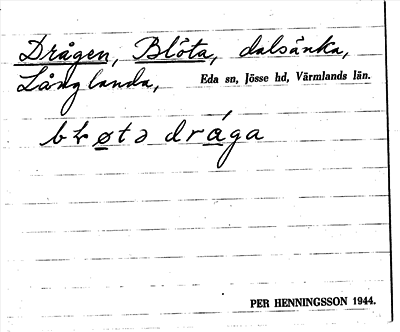 Drågen, Blöta, dalsänka,
Långlanda, Eda sn, Jösse hd, Värmlands län.
bløtə dråga
PER HENNINGSSON 1944.